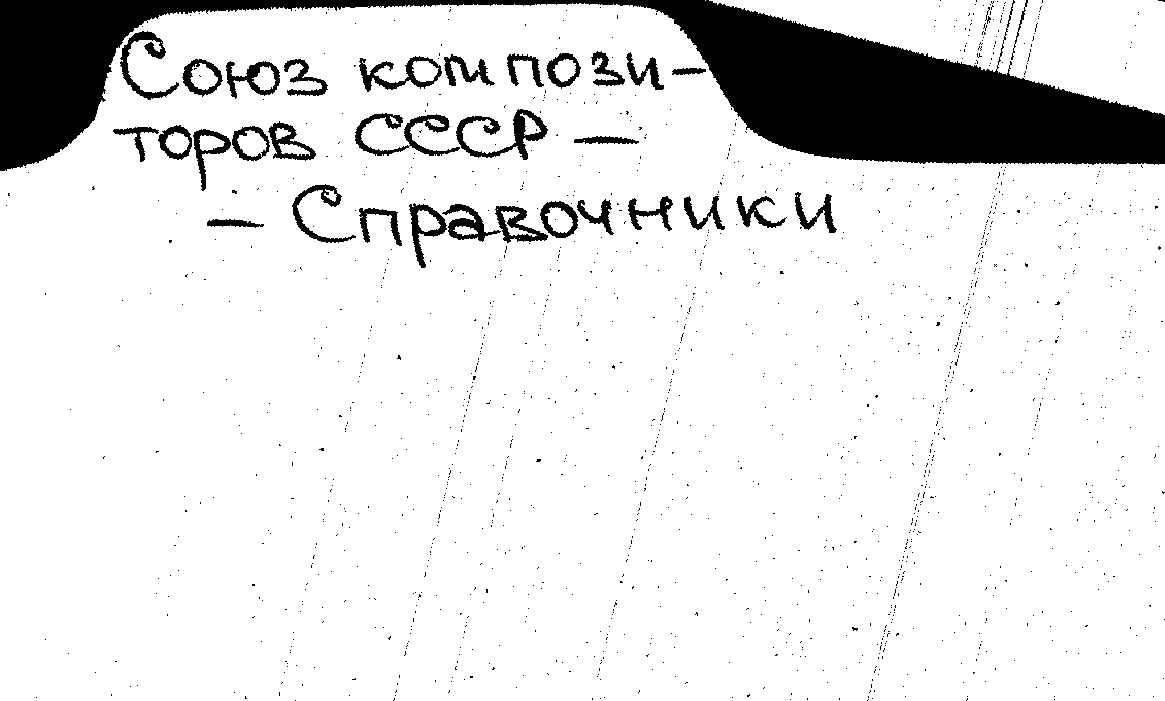 Союз компози-
торов СССР —
— Справочники